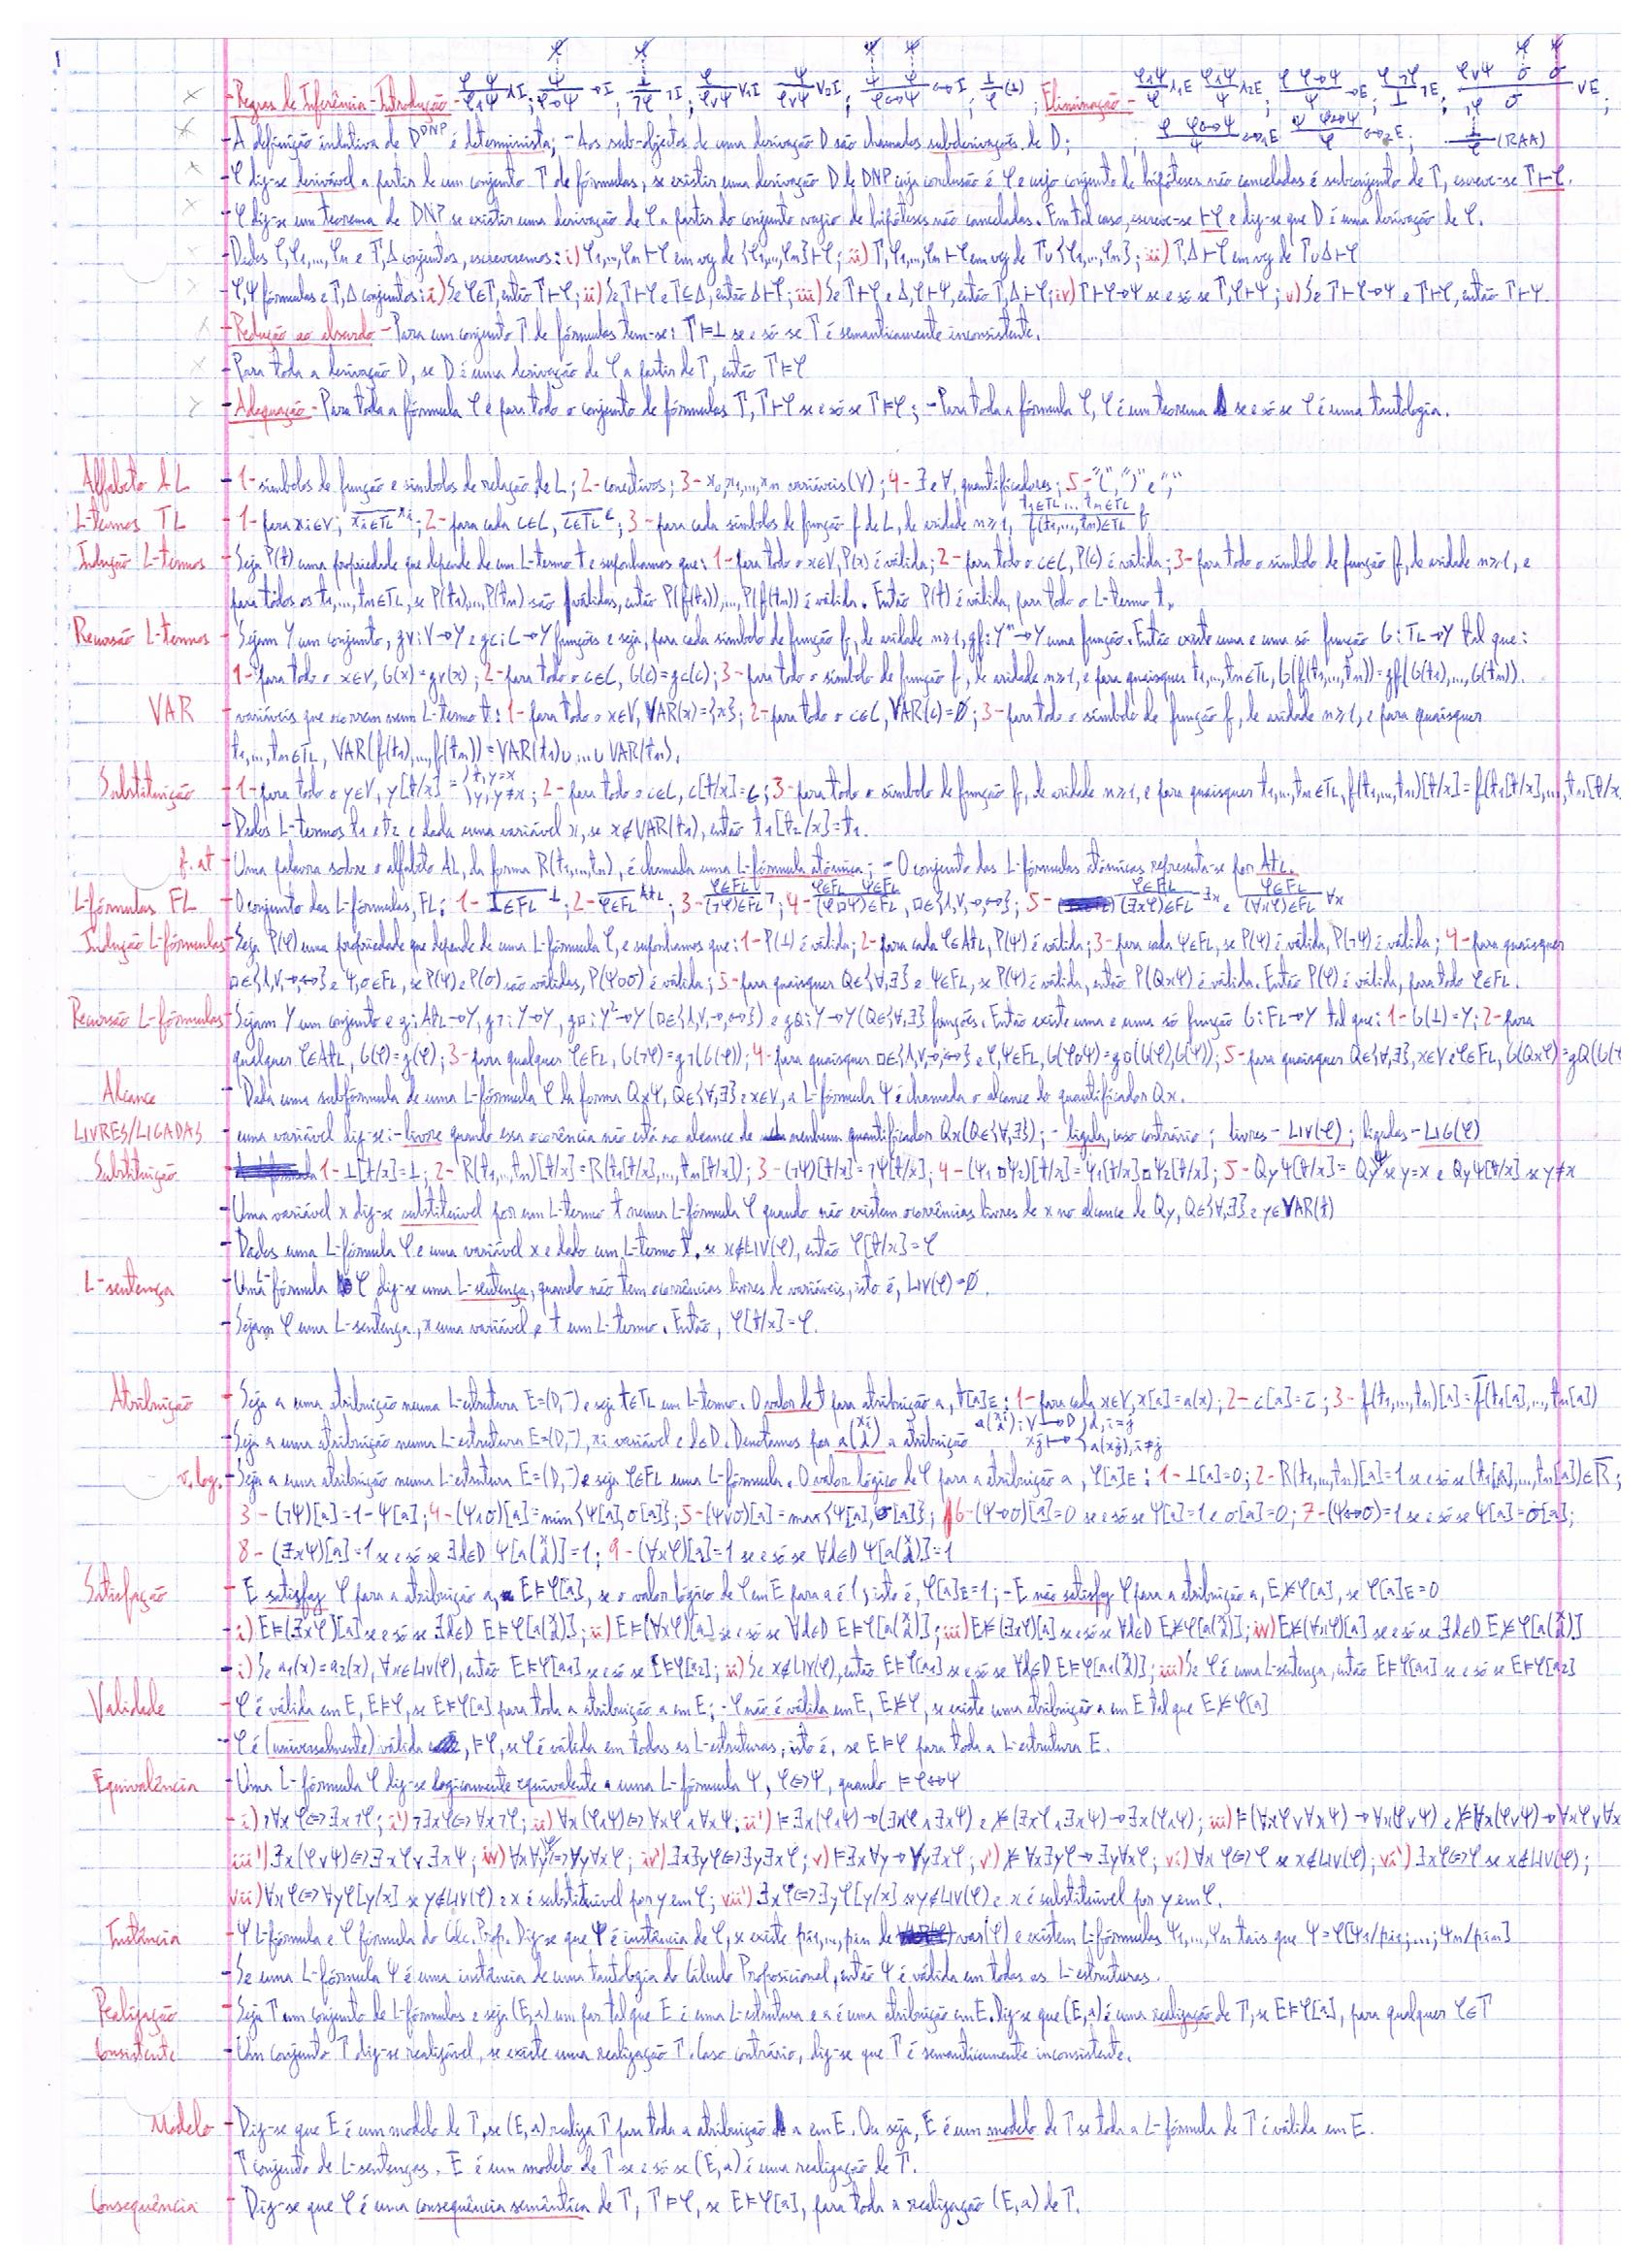 - Regras de Inferência - Introdução - φ ψ / φ∧ψ ∧I; ψ / φ→ψ →I; ⊥ / ¬φ ¬I; φ / φ∨ψ ∨₁I ψ / φ∨ψ ∨₂I; ψ φ / φ↔ψ ↔I; ⊥ / φ (⊥); Eliminação - φ∧ψ / φ ∧₁E φ∧ψ / ψ ∧₂E; φ φ→ψ / ψ →E; φ ¬φ / ⊥ ¬E; φ∨ψ σ σ / σ ∨E;
- A definição indutiva de D^DNP é determinista; - Aos sub-objectos de uma derivação D são chamados subderivações de D; φ φ↔ψ / ψ ↔₁E ψ φ↔ψ / φ ↔₂E; ⊥ / φ (RAA)
- φ diz-se derivável a partir de um conjunto Γ de fórmulas, se existir uma derivação D de DNP cuja conclusão é φ e cujo conjunto de hipóteses não canceladas é subconjunto de Γ, escreve-se Γ⊢φ.
- φ diz-se um teorema de DNP se existir uma derivação de φ a partir do conjunto vazio de hipóteses não canceladas. Em tal caso, escreve-se ⊢φ e diz-se que D é uma derivação de φ.
- Dados φ,φ1,...,φn e Γ,Δ conjuntos, escreveremos: i) φ1,...,φn⊢φ em vez de {φ1,...,φn}⊢φ; ii) Γ,φ1,...,φn⊢φ em vez de Γ∪{φ1,...,φn}; iii) Γ,Δ⊢φ em vez de Γ∪Δ⊢φ
- φ,ψ fórmulas e Γ,Δ conjuntos: i) Se φ∈Γ, então Γ⊢φ; ii) Se Γ⊢φ e Γ⊆Δ, então Δ⊢φ; iii) Se Γ⊢φ e Δ,φ⊢ψ, então Γ,Δ⊢ψ; iv) Γ⊢φ→ψ se e só se Γ,φ⊢ψ; v) Se Γ⊢φ→ψ e Γ⊢φ, então Γ⊢ψ.
- Redução ao absurdo - Para um conjunto Γ de fórmulas tem-se: Γ⊨⊥ se e só se Γ é semanticamente inconsistente.
- Para toda a derivação D, se D é uma derivação de φ a partir de Γ, então Γ⊨φ
- Adequação - Para toda a fórmula φ e para todo o conjunto de fórmulas Γ, Γ⊢φ se e só se Γ⊨φ; - Para toda a fórmula φ, φ é um teorema se e só se φ é uma tautologia.
Alfabeto AL - 1-símbolos de função e símbolos de relação de L; 2-conectivos; 3-x0,x1,...,xn variáveis (V); 4-∃ e ∀, quantificadores; 5-"(", ")" e ","
L-termos TL - 1-para xi∈V, xi∈TL xi; 2-para cada c∈L, c∈TL c; 3-para cada símbolos de função f de L, de aridade n≥1, t1∈TL ... tn∈TL / f(t1,...,tn)∈TL f
Indução L-termos - Seja P(t) uma propriedade que depende de um L-termo t e suponhamos que: 1-para todo o x∈V, P(x) é válida; 2-para todo o c∈L, P(c) é válida; 3-para todo o símbolo de função f, de aridade n≥1, e
para todos os t1,...,tn∈TL, se P(t1),...,P(tn) são válidas, então P(f(t1)),...,P(f(tn)) é válida. Então P(t) é válida, para todo o L-termo t.
Recursão L-termos - Sejam Y um conjunto, gv:V→Y e gc:L→Y funções e seja, para cada símbolo de função f, de aridade n≥1, gf:Yⁿ→Y uma função. Então existe uma e uma só função G:TL→Y tal que:
1-para todo o x∈V, G(x)=gv(x); 2-para todo o c∈L, G(c)=gc(c); 3-para todo o símbolo de função f, de aridade n≥1, e para quaisquer t1,...,tn∈TL, G(f(t1,...,tn))=gf(G(t1),...,G(tn)).
VAR - variáveis que ocorrem num L-termo t: 1-para todo o x∈V, VAR(x)={x}; 2-para todo o c∈L, VAR(c)=∅; 3-para todo o símbolo de função f, de aridade n≥1, e para quaisquer
t1,...,tn∈TL, VAR(f(t1),...,f(tn))=VAR(t1)∪...∪VAR(tn).
Substituição - 1-para todo o y∈V, y[t/x]={t, y=x; y, y≠x; 2-para todo o c∈L, c[t/x]=c; 3-para todo o símbolo de função f, de aridade n≥1, e para quaisquer t1,...,tn∈TL, f(t1,...,tn)[t/x]=f(t1[t/x],...,tn[t/x
- Dados L-termos t1 e t2 e dada uma variável x, se x∉VAR(t1), então t1[t2/x]=t1.
f. at - Uma palavra sobre o alfabeto AL, da forma R(t1,...,tn), é chamada uma L-fórmula atómica; - O conjunto das L-fórmulas atómicas representa-se por AtL.
L-fórmulas FL - O conjunto das L-fórmulas, FL: 1- ⊥∈FL ⊥; 2- φ∈FL AtL; 3- φ∈FL / (¬φ)∈FL ¬; 4- φ∈FL ψ∈FL / (φ□ψ)∈FL, □∈{∧,∨,→,↔}; 5- φ∈FL / (∃xφ)∈FL ∃x e φ∈FL / (∀xφ)∈FL ∀x
Indução L-fórmulas - Seja P(φ) uma propriedade que depende de uma L-fórmula φ, e suponhamos que: 1-P(⊥) é válida; 2-para cada ψ∈AtL, P(ψ) é válida; 3-para cada ψ∈FL, se P(ψ) é válida, P(¬ψ) é válida; 4-para quaisquer
□∈{∧,∨,→,↔} e ψ,σ∈FL, se P(ψ) e P(σ) são válidas, P(ψ□σ) é válida; 5-para quaisquer Q∈{∀,∃} e ψ∈FL, se P(ψ) é válida, então P(Qxψ) é válida. Então P(φ) é válida, para todo φ∈FL.
Recursão L-fórmulas - Sejam Y um conjunto e g:AtL→Y, g¬:Y→Y, g□:Y²→Y (□∈{∧,∨,→,↔}) e gQ:Y→Y (Q∈{∀,∃} funções. Então existe uma e uma só função G:FL→Y tal que: 1-G(⊥)=Y; 2-para
qualquer φ∈AtL, G(φ)=g(φ); 3-para qualquer φ∈FL, G(¬φ)=g¬(G(φ)); 4-para quaisquer □∈{∧,∨,→,↔} e φ,ψ∈FL, G(φ□ψ)=g□(G(φ),G(ψ)); 5-para quaisquer Q∈{∀,∃}, x∈V e φ∈FL, G(Qxφ)=gQ(G(φ
Alcance - Dada uma subfórmula de uma L-fórmula φ da forma Qxψ, Q∈{∀,∃} e x∈V, a L-fórmula ψ é chamada o alcance do quantificador Qx.
LIVRES/LIGADAS - uma variável diz-se: - livre quando essa ocorrência não está no alcance de nenhum quantificador Qx (Q∈{∀,∃}); - ligada, caso contrário; livres - LIV(φ); ligadas - LIG(φ)
Substituição - 1-⊥[t/x]=⊥; 2-R(t1,...,tn)[t/x]=R(t1[t/x],...,tn[t/x]); 3-(¬ψ)[t/x]=¬ψ[t/x]; 4-(ψ1□ψ2)[t/x]=ψ1[t/x]□ψ2[t/x]; 5-Qyψ[t/x]=Qyψ se y=x e Qyψ[t/x] se y≠x
- Uma variável x diz-se substituível por um L-termo t numa L-fórmula φ quando não existem ocorrências livres de x no alcance de Qy, Q∈{∀,∃} e y∈VAR(t)
- Dados uma L-fórmula φ e uma variável x e dado um L-termo t, se x∉LIV(φ), então φ[t/x]=φ
L-sentença - Uma L-fórmula φ diz-se uma L-sentença, quando não tem ocorrências livres de variáveis, isto é, LIV(φ)=∅.
- Sejam φ uma L-sentença, x uma variável e t um L-termo. Então, φ[t/x]=φ.
Atribuição - Seja a uma atribuição numa L-estrutura E=(D,¯) e seja t∈TL um L-termo. O valor de t para atribuição a, t[a]E: 1-para cada x∈V, x[a]=a(x); 2-c[a]=c̄; 3-f(t1,...,tn)[a]=f̄(t1[a],...,tn[a])
- Seja a uma atribuição numa L-estrutura E=(D,¯), xi variável e d∈D. Denotamos por a(xi d) a atribuição a(xi d):V→D xj↦{d, i=j; a(xj), i≠j
v. log. - Seja a uma atribuição numa L-estrutura E=(D,¯) e seja φ∈FL uma L-fórmula. O valor lógico de φ para a atribuição a, φ[a]E: 1-⊥[a]=0; 2-R(t1,...,tn)[a]=1 se e só se (t1[a],...,tn[a])∈R̄;
3-(¬ψ)[a]=1-ψ[a]; 4-(ψ∧σ)[a]=min{ψ[a],σ[a]}; 5-(ψ∨σ)[a]=max{ψ[a],σ[a]}; 6-(ψ→σ)[a]=0 se e só se ψ[a]=1 e σ[a]=0; 7-(ψ↔σ)=1 se e só se ψ[a]=σ[a];
8-(∃xψ)[a]=1 se e só se ∃d∈D ψ[a(x d)]=1; 9-(∀xψ)[a]=1 se e só se ∀d∈D ψ[a(x d)]=1
Satisfação - E satisfaz φ para a atribuição a, E⊨φ[a], se o valor lógico de φ em E para a é 1, isto é, φ[a]E=1; - E não satisfaz φ para a atribuição a, E⊭φ[a], se φ[a]E=0
- i) E⊨(∃xφ)[a] se e só se ∃d∈D E⊨φ[a(x d)]; ii) E⊨(∀xφ)[a] se e só se ∀d∈D E⊨φ[a(x d)]; iii) E⊭(∃xφ)[a] se e só se ∀d∈D E⊭φ[a(x d)]; iv) E⊭(∀xφ)[a] se e só se ∃d∈D E⊭φ[a(x d)]
- i) Se a1(x)=a2(x), ∀x∈LIV(φ), então E⊨φ[a1] se e só se E⊨φ[a2]; ii) Se x∉LIV(φ), então E⊨φ[a1] se e só se ∀d∈D E⊨φ[a1(x d)]; iii) Se φ é uma L-sentença, então E⊨φ[a1] se e só se E⊨φ[a2]
Validade - φ é válida em E, E⊨φ, se E⊨φ[a] para toda a atribuição a em E; - φ não é válida em E, E⊭φ, se existe uma atribuição a em E tal que E⊭φ[a]
- φ é (universalmente) válida, ⊨φ, se φ é válida em todas as L-estruturas, isto é, se E⊨φ para toda a L-estrutura E.
Equivalência - Uma L-fórmula φ diz-se logicamente equivalente a uma L-fórmula ψ, φ⇔ψ, quando ⊨φ↔ψ
- i) ¬∀xφ⇔∃x¬φ; i') ¬∃xφ⇔∀x¬φ; ii) ∀x(φ∧ψ)⇔∀xφ∧∀xψ; ii') ⊨∃x(φ∧ψ)→(∃xφ∧∃xψ) e ⊭(∃xφ∧∃xψ)→∃x(φ∧ψ); iii) ⊨(∀xφ∨∀xψ)→∀x(φ∨ψ) e ⊭∀x(φ∨ψ)→∀xφ∨∀x
iii') ∃x(φ∨ψ)⇔∃xφ∨∃xψ; iv) ∀x∀yφ⇔∀y∀xφ; iv') ∃x∃yφ⇔∃y∃xφ; v) ⊨∃x∀y→∀y∃xφ; v') ⊭∀x∃yφ→∃y∀xφ; vi) ∀xφ⇔φ se x∉LIV(φ); vi') ∃xφ⇔φ se x∉LIV(φ);
vii) ∀xφ⇔∀yφ[y/x] se y∉LIV(φ) e x é substituível por y em φ; vii') ∃xφ⇔∃yφ[y/x] se y∉LIV(φ) e x é substituível por y em φ.
Instância - ψ L-fórmula e φ fórmula do Cálc. Prop. Diz-se que ψ é instância de φ, se existe pi1,...,pin de var(φ) e existem L-fórmulas ψ1,...,ψn tais que ψ=φ[ψ1/pi1;...;ψn/pin]
- Se uma L-fórmula ψ é uma instância de uma tautologia do Cálculo Proposicional, então ψ é válida em todas as L-estruturas.
Realização - Seja Γ um conjunto de L-fórmulas e seja (E,a) um par tal que E é uma L-estrutura e a é uma atribuição em E. Diz-se que (E,a) é uma realização de Γ, se E⊨φ[a], para qualquer φ∈Γ
Consistente - Um conjunto Γ diz-se realizável, se existe uma realização Γ. Caso contrário, diz-se que Γ é semanticamente inconsistente.
Modelo - Diz-se que E é um modelo de Γ, se (E,a) realiza Γ para toda a atribuição a em E. Ou seja, E é um modelo de Γ se toda a L-fórmula de Γ é válida em E.
Γ conjunto de L-sentenças. E é um modelo de Γ se e só se (E,a) é uma realização de Γ.
Consequência - Diz-se que φ é uma consequência semântica de Γ, Γ⊨φ, se E⊨φ[a], para toda a realização (E,a) de Γ.